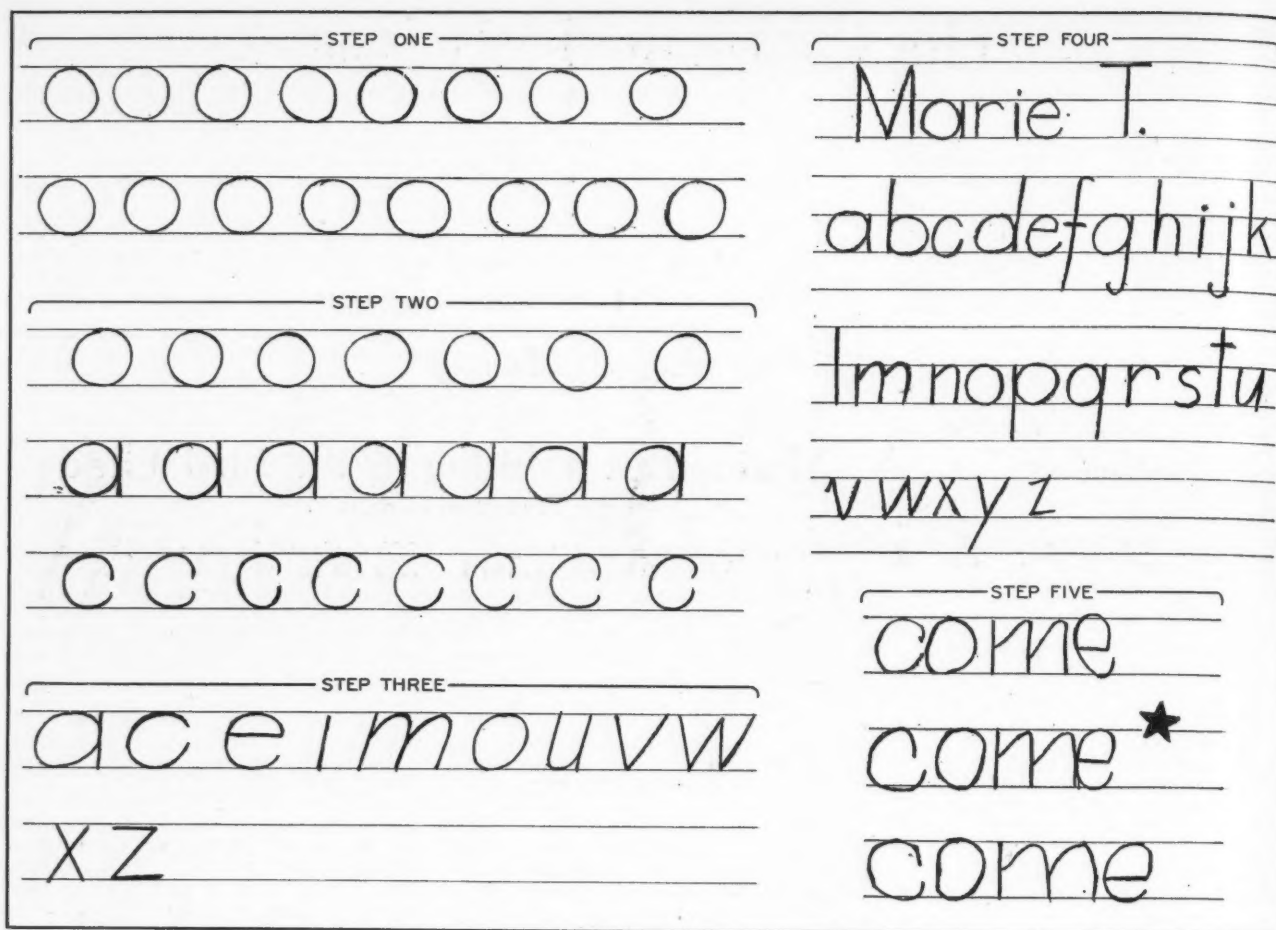 STEP ONE
o o o o o o o o
o o o o o o o o
STEP TWO
o o o o o o o
a a a a a a a
c c c c c c c c
STEP THREE
a c e i m o u v w
x z
STEP FOUR
Marie T.
a b c d e f g h i j k
l m n o p q r s t u
v w x y z
STEP FIVE
come
come ★
come